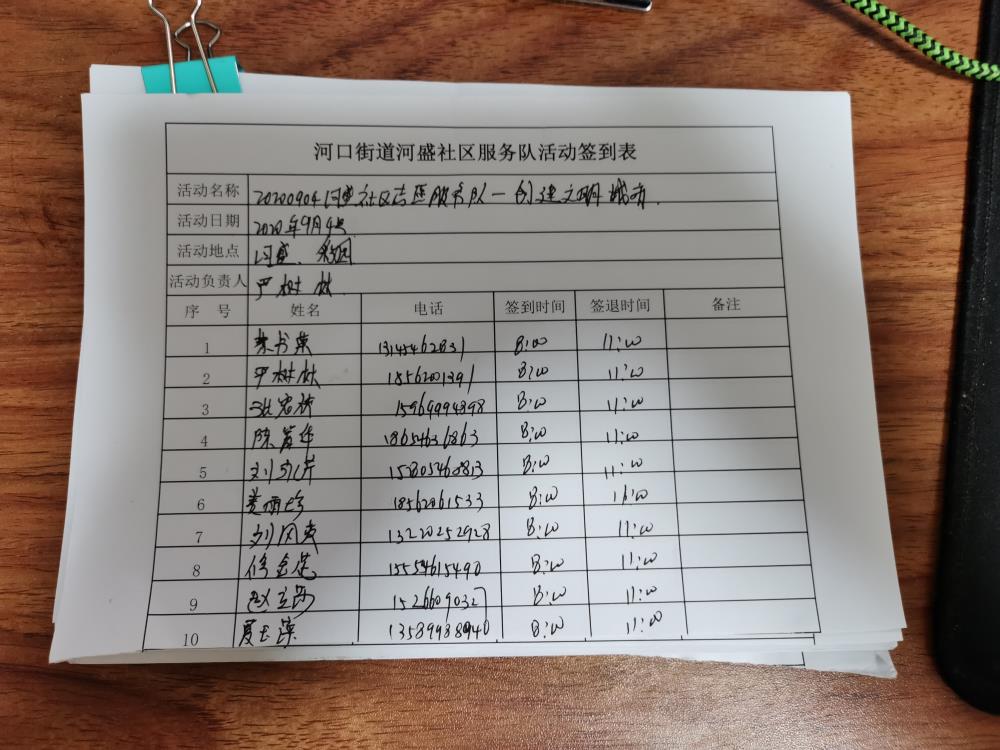 河口街道河盛社区服务队活动签到表
活动名称 20200904河盛社区志愿服务队一创建文明城市.
活动日期 2020年9月4号
活动地点 河盛、
活动负责人 严树林
序 号 姓名 电话 签到时间 签退时间 备注
1 13145462831 8:00 11:00
2 严树林 1856201391 8:00 11:00
3 15969994898 8:00 11:00
4 18654636863 8:00 11:00
5 15805460813 8:00 11:00
6 18562061533 8:00 11:00
7 刘风英 13220252928 8:00 11:00
8 15554615490 8:00 11:00
9 15266090327 8:00 11:00
10 13589988940 8:00 11:00